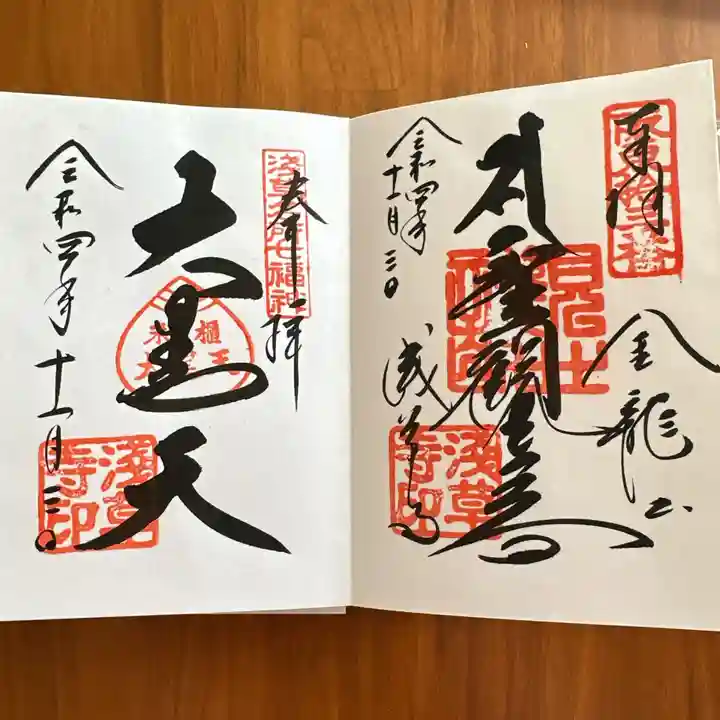 奉拝
金龍山
聖観世音
浅草寺
令和四年
十一月三日
浅草
寺印
奉拝
浅草名所七福神
大黒天
令和四年十一月三日
浅草
寺印